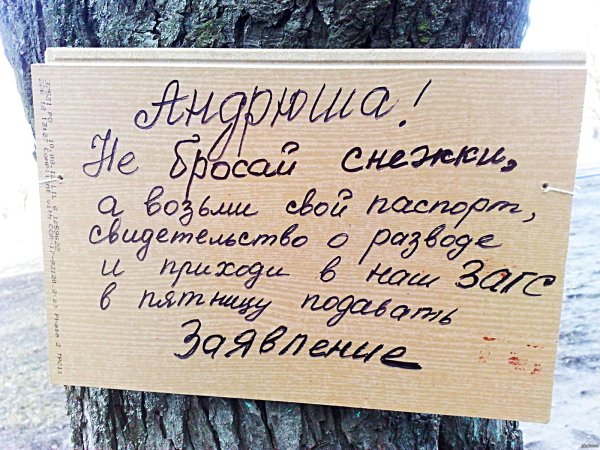 Андрюша!
Не бросай снежки,
а возьми свой паспорт,
свидетельство о разводе
и приходи в наш ЗАГС
в пятницу подавать
Заявление